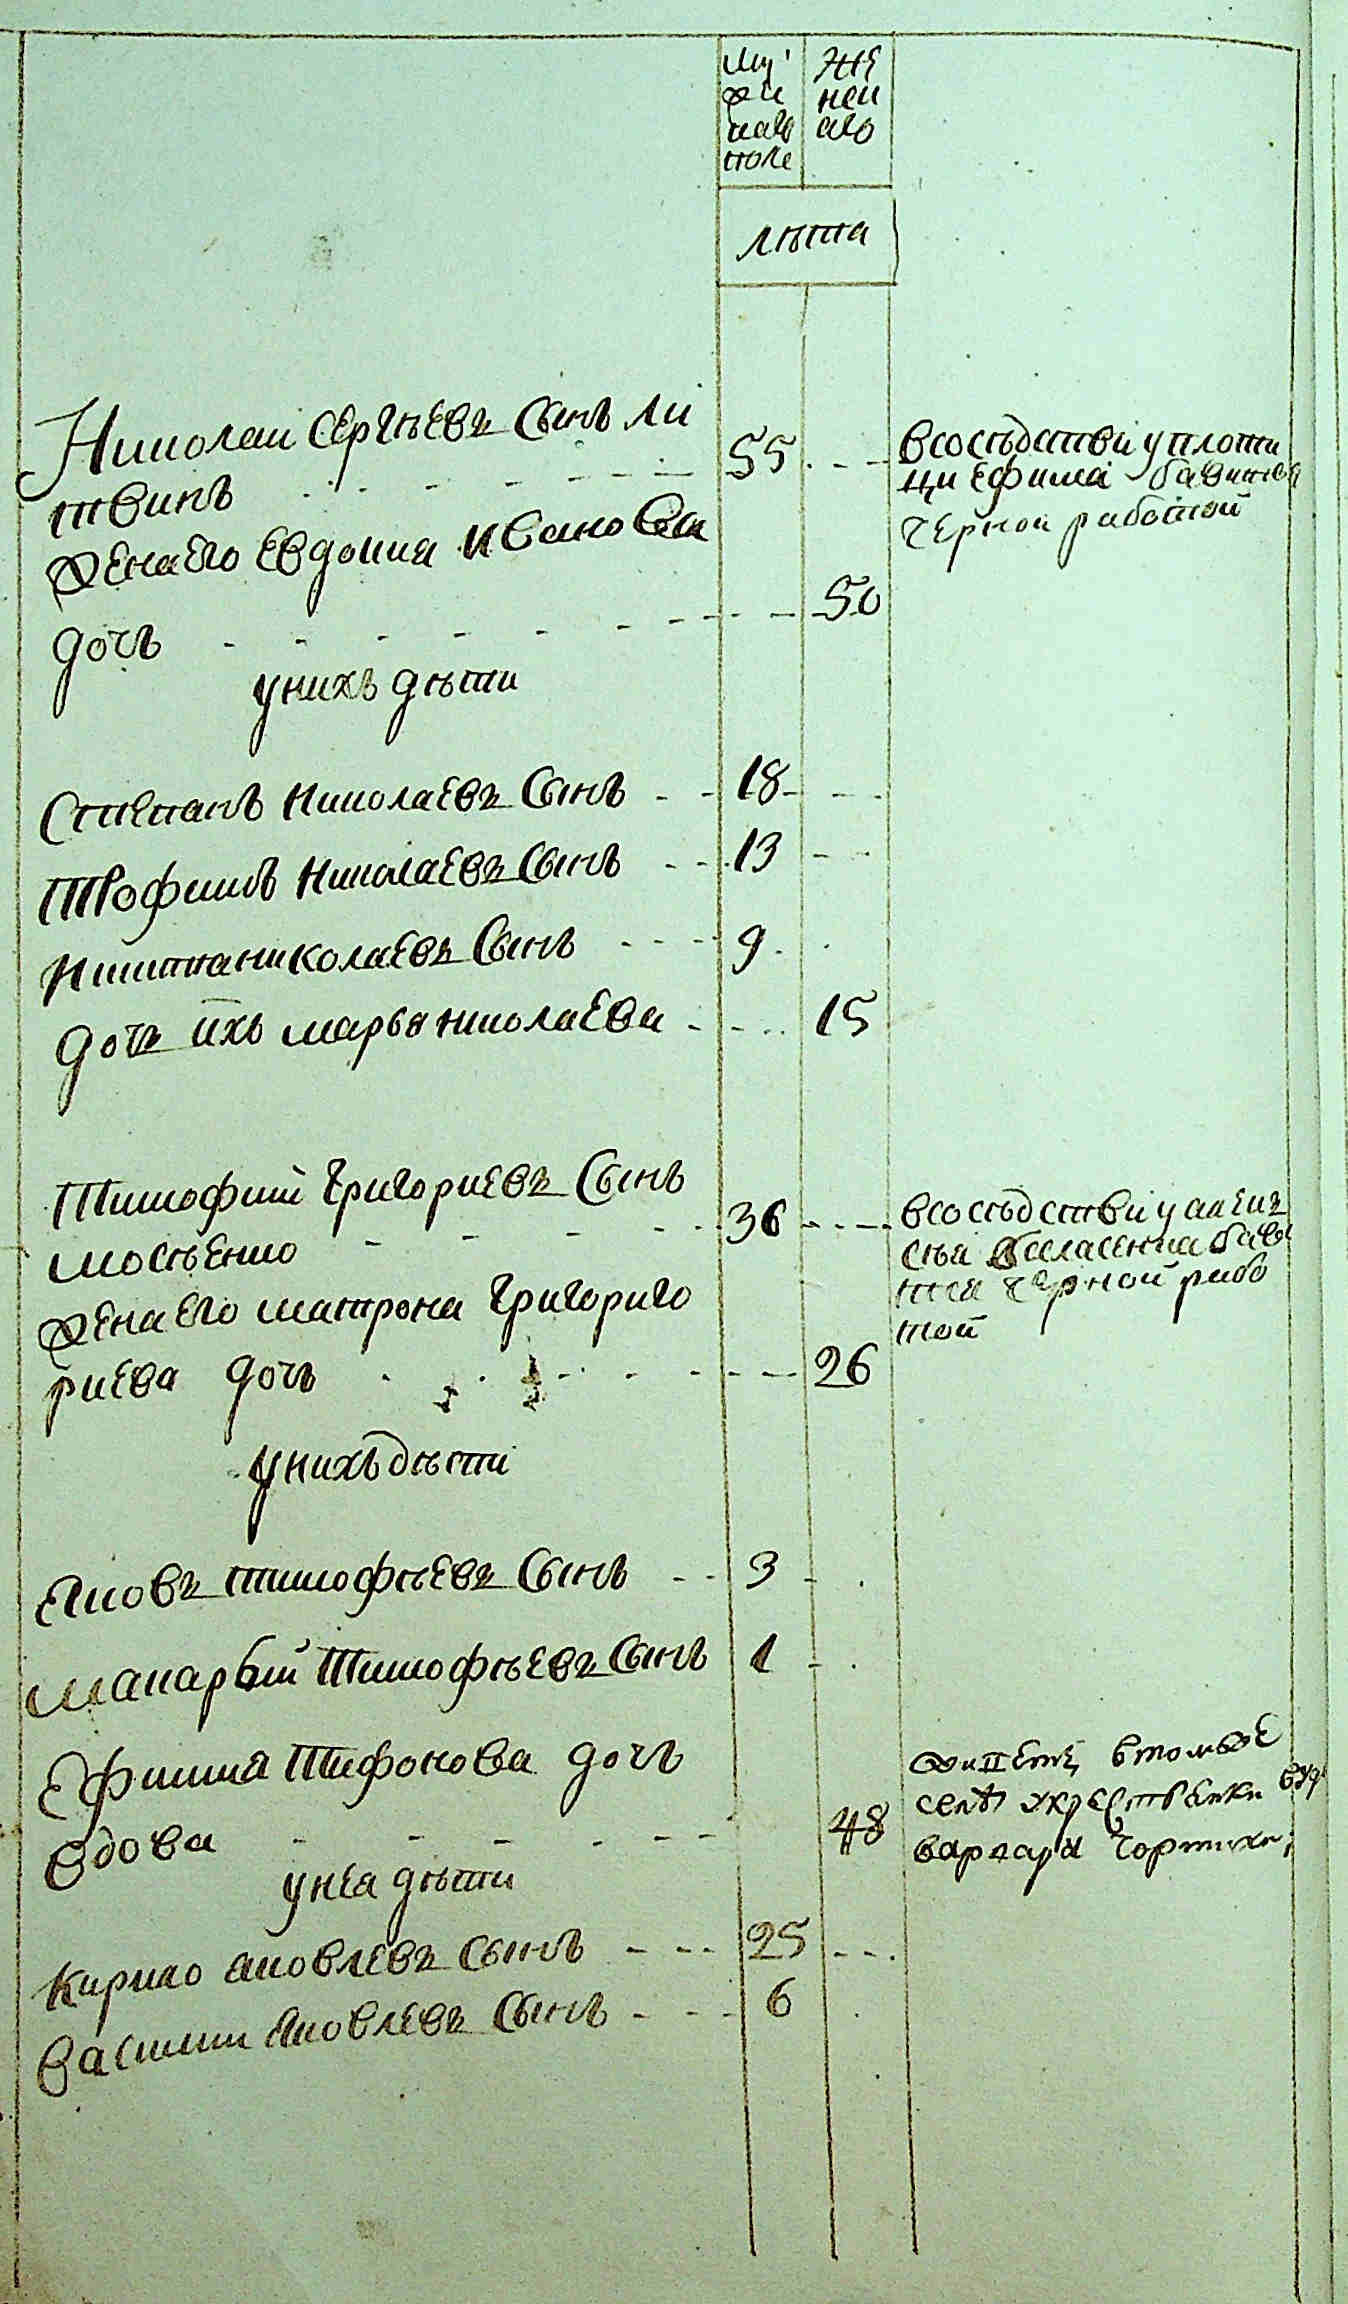 му
жес
каго
поле
же
нск
аго
лѣта
Николаи Сергѣевъ Сынъ ли
твинъ
55
всосѣдствѣи у плотни
ци Ефима
черной работой
Жена его Евдокия Ивановска
дочь
50
у нихъ дѣти
Степанъ Николаевъ Сынъ 18
Трофимъ Николаевъ Сынъ 13
Никита николаевъ Сынъ 9
дочь ихъ марья николаева 15
Тимофий Григориевъ Сынъ
мосѣенко
36
всосѣдствѣи у алек
черной рабо
той
Жена его матрона Григориго
риева дочь
26
у нихъ дѣти
Яковъ тимофѣевъ Сынъ 3
макарьий Тимофѣевъ Сынъ 1
Ефимия Тифонова дочь
вдова
48
живетъ втомже
селѣ укрестьянки
варвары
у нея дѣти
Кирило яковлевъ Сынъ 25
василии Яковлевъ Сынъ 6